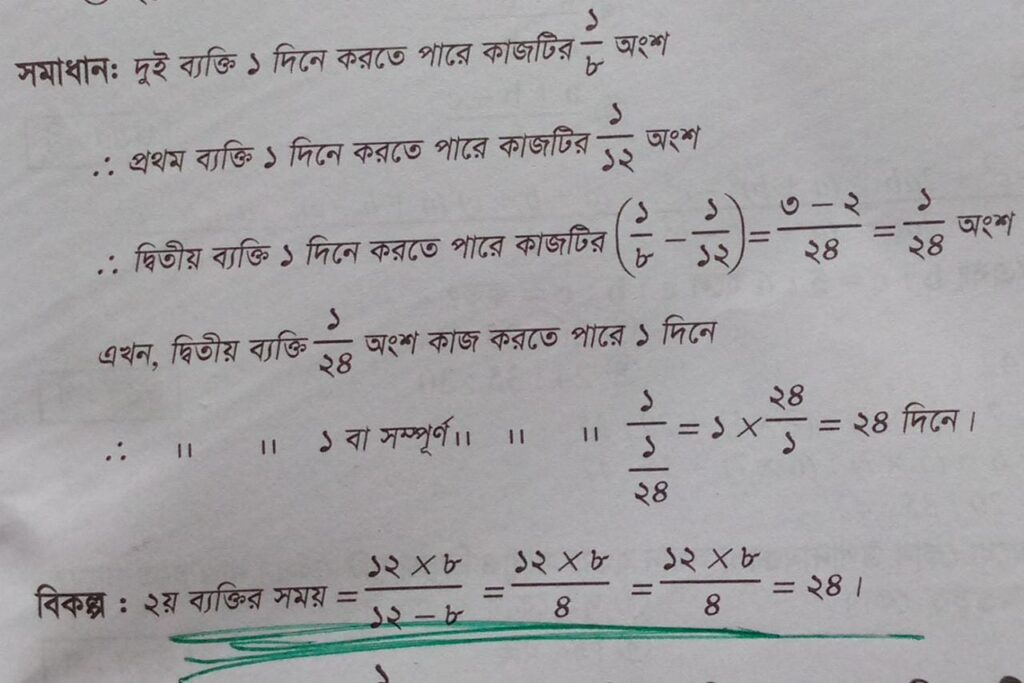 সমাধান: দুই ব্যক্তি ১ দিনে করতে পারে কাজটির ১/৮ অংশ
∴ প্রথম ব্যক্তি ১ দিনে করতে পারে কাজটির ১/১২ অংশ
∴ দ্বিতীয় ব্যক্তি ১ দিনে করতে পারে কাজটির (১/৮ − ১/১২) = ৩ − ২/২৪ = ১/২৪ অংশ
এখন, দ্বিতীয় ব্যক্তি ১/২৪ অংশ কাজ করতে পারে ১ দিনে
∴ ,, ,, ১ বা সম্পূর্ণ ,, ,, ,, ১/(১/২৪) = ১ × ২৪/১ = ২৪ দিনে।
বিকল্প : ২য় ব্যক্তির সময় = ১২ × ৮/১২ − ৮ = ১২ × ৮/৪ = ১২ × ৮/৪ = ২৪।